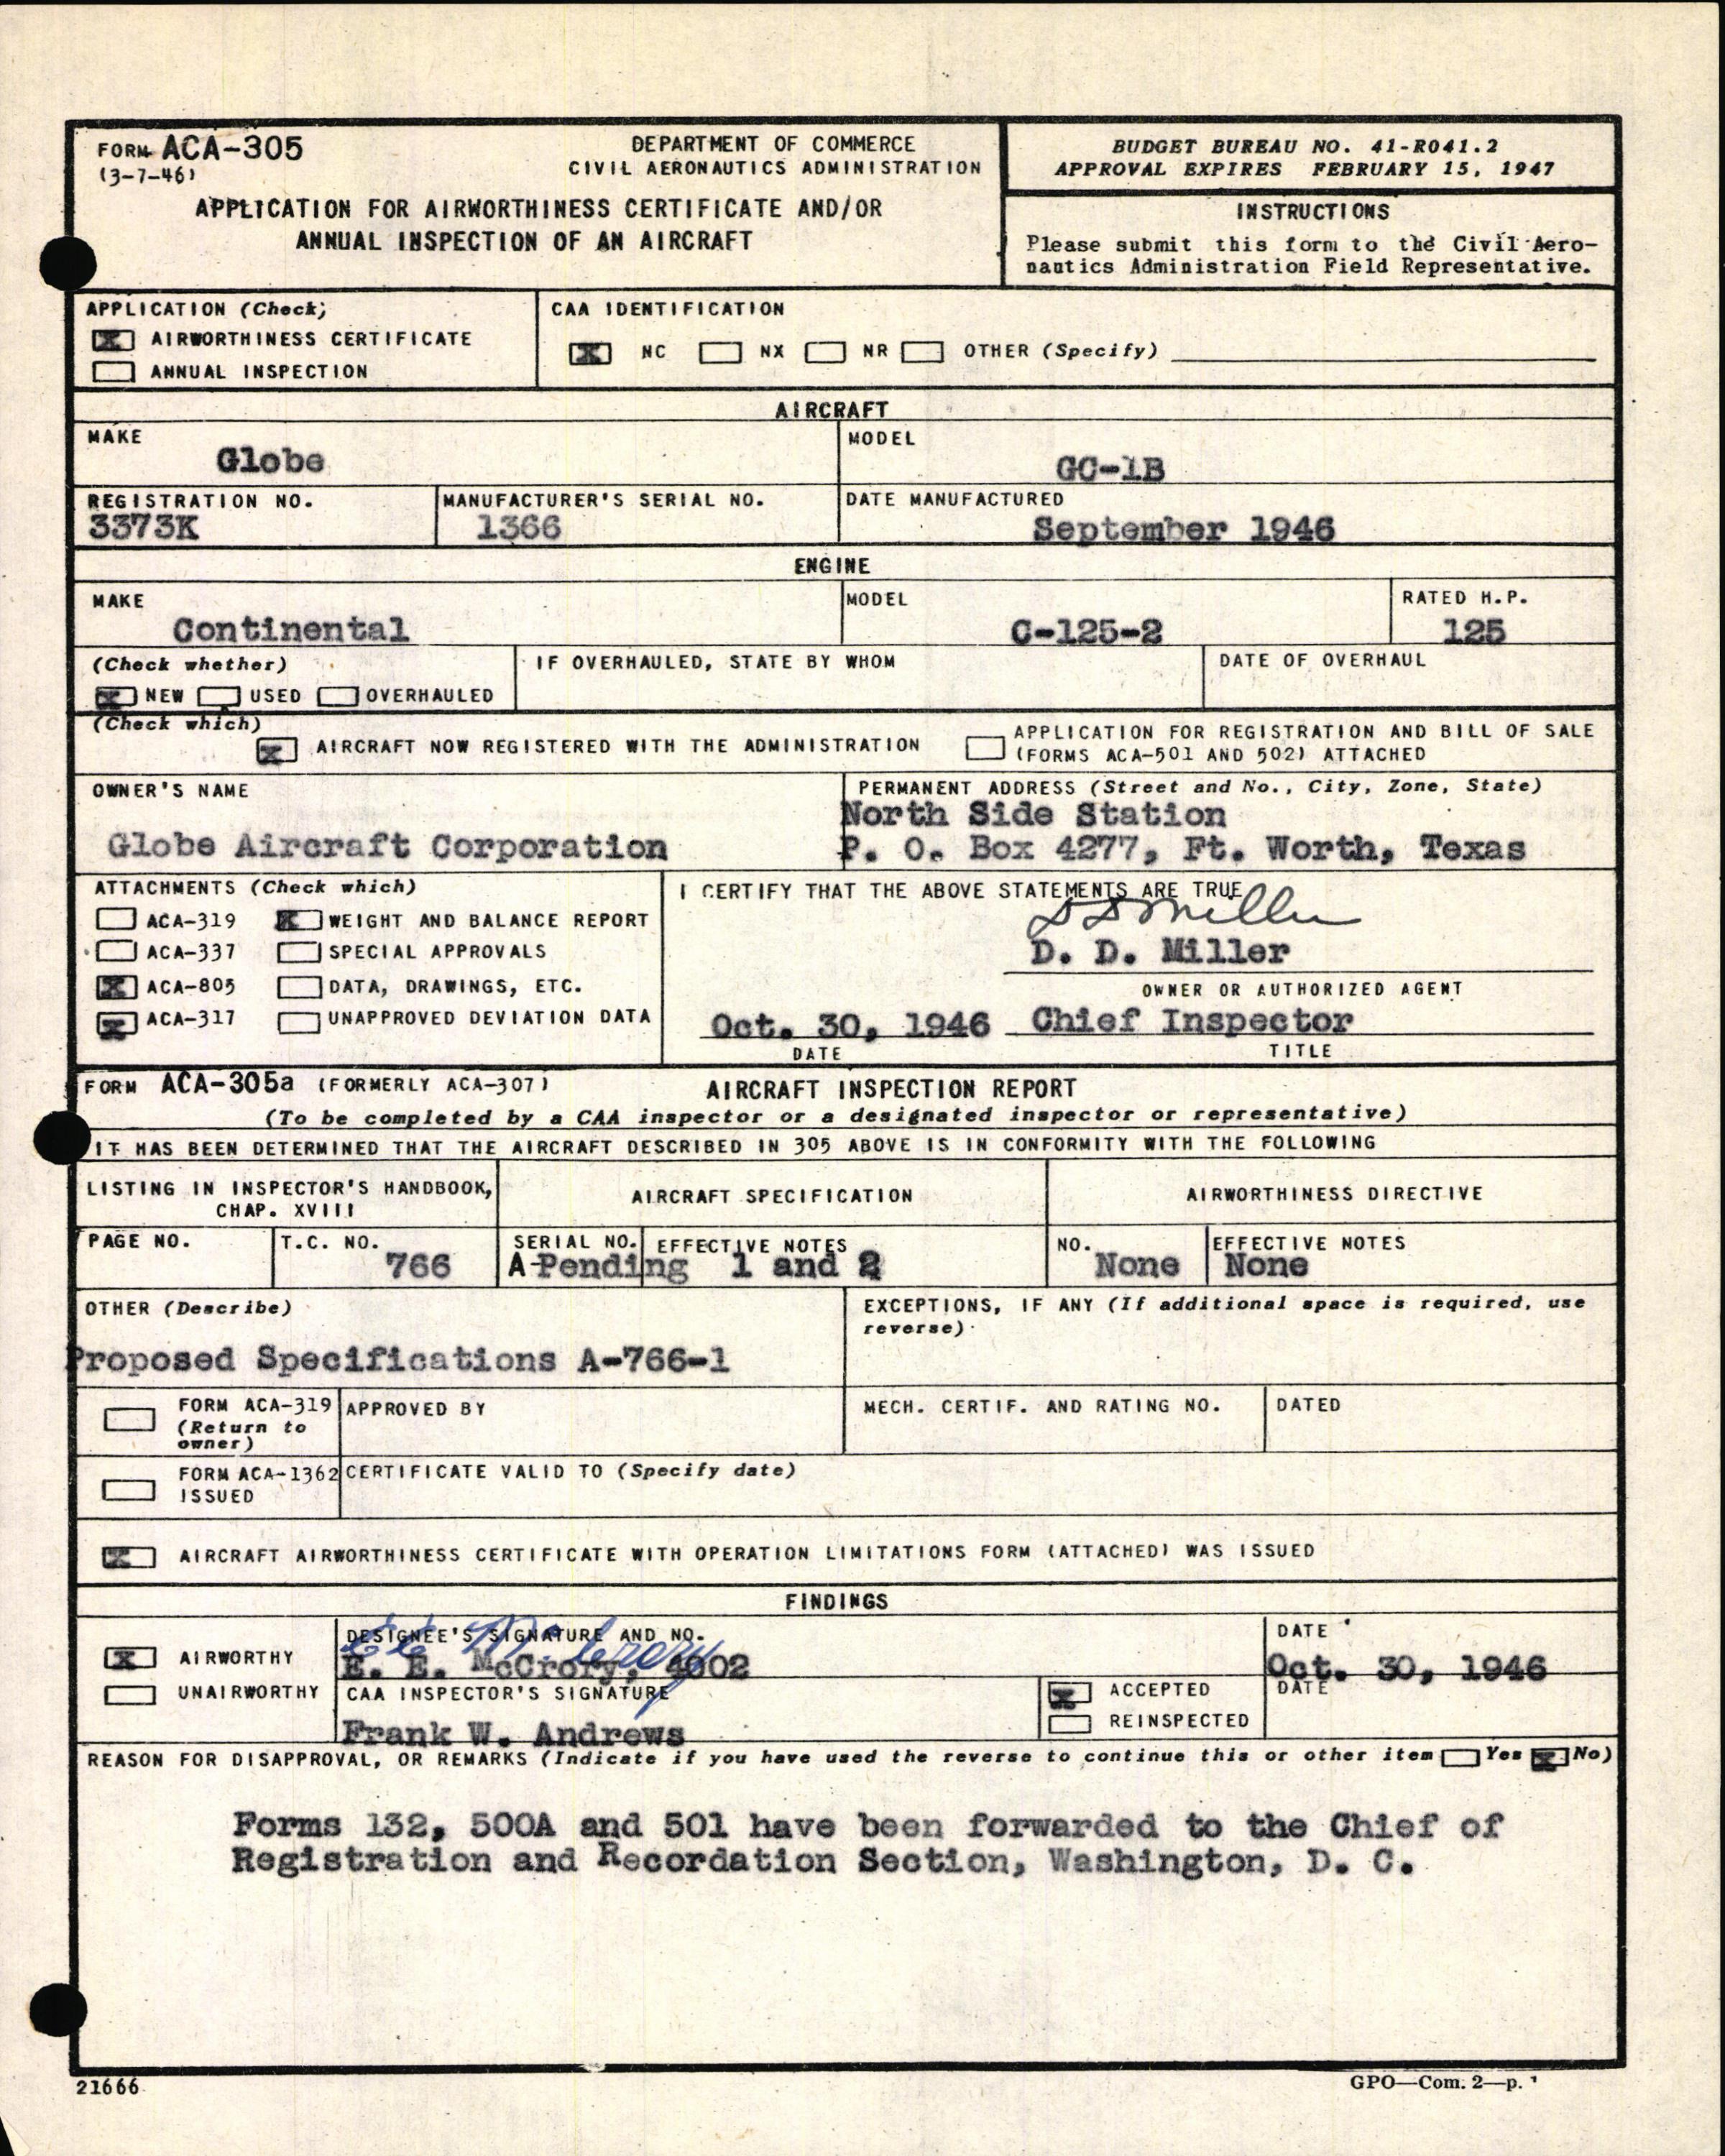 FORM ACA-305
(3-7-46)
DEPARTMENT OF COMMERCE
CIVIL AERONAUTICS ADMINISTRATION
APPLICATION FOR AIRWORTHINESS CERTIFICATE AND/OR
ANNUAL INSPECTION OF AN AIRCRAFT
BUDGET BUREAU NO. 41-R041.2
APPROVAL EXPIRES FEBRUARY 15, 1947
INSTRUCTIONS
Please submit this form to the Civil Aero-
nautics Administration Field Representative.
APPLICATION (Check)
X AIRWORTHINESS CERTIFICATE
ANNUAL INSPECTION
CAA IDENTIFICATION
X NC NX NR OTHER (Specify)
AIRCRAFT
MAKE
Globe
MODEL
GC-1B
REGISTRATION NO.
3373K
MANUFACTURER'S SERIAL NO.
1366
DATE MANUFACTURED
September 1946
ENGINE
MAKE
Continental
MODEL
C-125-2
RATED H.P.
125
(Check whether)
X NEW USED OVERHAULED
IF OVERHAULED, STATE BY WHOM
DATE OF OVERHAUL
(Check which)
X AIRCRAFT NOW REGISTERED WITH THE ADMINISTRATION
APPLICATION FOR REGISTRATION AND BILL OF SALE
(FORMS ACA-501 AND 502) ATTACHED
OWNER'S NAME
Globe Aircraft Corporation
PERMANENT ADDRESS (Street and No., City, Zone, State)
North Side Station
P. O. Box 4277, Ft. Worth, Texas
ATTACHMENTS (Check which)
ACA-319 X WEIGHT AND BALANCE REPORT
ACA-337 SPECIAL APPROVALS
X ACA-805 DATA, DRAWINGS, ETC.
X ACA-317 UNAPPROVED DEVIATION DATA
I CERTIFY THAT THE ABOVE STATEMENTS ARE TRUE
D D Miller
D. D. Miller
OWNER OR AUTHORIZED AGENT
Oct. 30, 1946 Chief Inspector
DATE TITLE
FORM ACA-305a (FORMERLY ACA-307) AIRCRAFT INSPECTION REPORT
(To be completed by a CAA inspector or a designated inspector or representative)
IT HAS BEEN DETERMINED THAT THE AIRCRAFT DESCRIBED IN 305 ABOVE IS IN CONFORMITY WITH THE FOLLOWING
LISTING IN INSPECTOR'S HANDBOOK,
CHAP. XVIII
AIRCRAFT SPECIFICATION
AIRWORTHINESS DIRECTIVE
PAGE NO. T.C. NO. SERIAL NO. EFFECTIVE NOTES NO. EFFECTIVE NOTES
766 A-Pending 1 and 2 None None
OTHER (Describe)
Proposed Specifications A-766-1
EXCEPTIONS, IF ANY (If additional space is required, use
reverse)
FORM ACA-319
(Return to
owner)
APPROVED BY
MECH. CERTIF. AND RATING NO.
DATED
FORM ACA-1362
ISSUED
CERTIFICATE VALID TO (Specify date)
X AIRCRAFT AIRWORTHINESS CERTIFICATE WITH OPERATION LIMITATIONS FORM (ATTACHED) WAS ISSUED
FINDINGS
X AIRWORTHY
UNAIRWORTHY
DESIGNEE'S SIGNATURE AND NO.
E E McCrory
E. E. McCrory, 4002
DATE
Oct. 30, 1946
CAA INSPECTOR'S SIGNATURE
Frank W. Andrews
X ACCEPTED
REINSPECTED
DATE
REASON FOR DISAPPROVAL, OR REMARKS (Indicate if you have used the reverse to continue this or other item Yes X No)
Forms 132, 500A and 501 have been forwarded to the Chief of
Registration and Recordation Section, Washington, D. C.
21666
GPO—Com. 2—p. 1